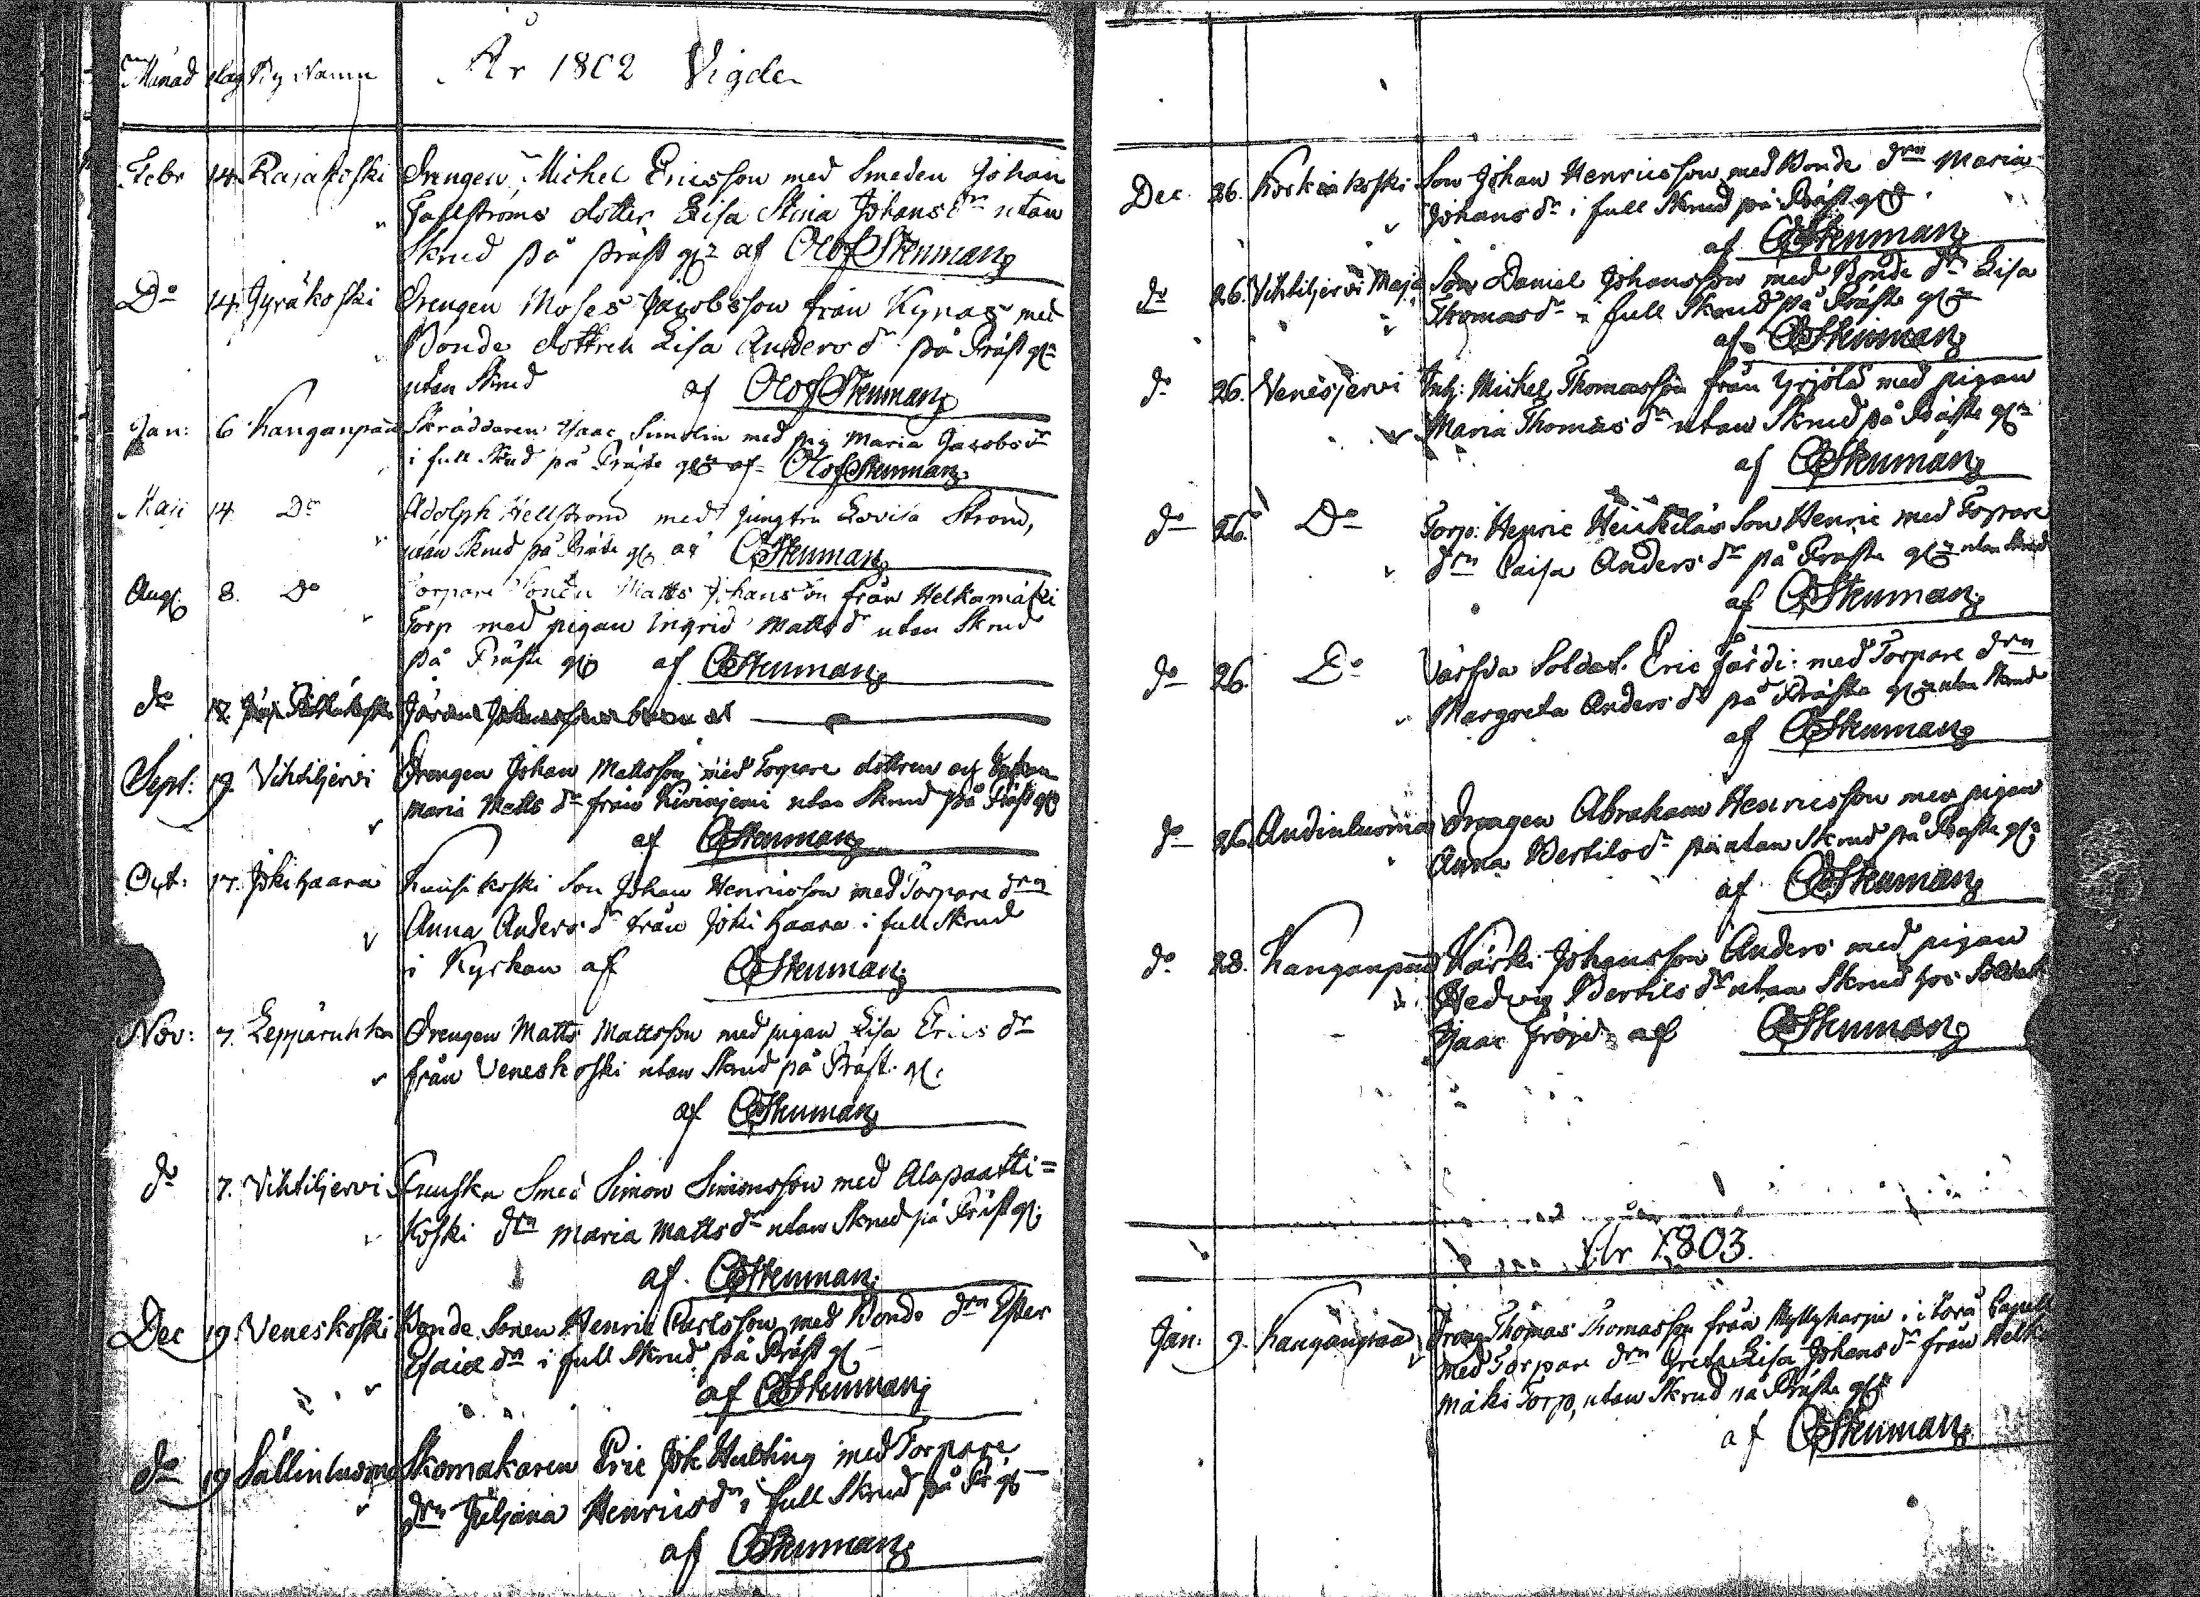 Månad dag By Namn År 1802 Vigde
Febr 14. Rajakoski Drengen Michel Ericsson med Smeden Johan
Fahlströms dotter Lisa Stina Johans dr utan
Skrud på präst g. af Olof Stenman
Do 14. Jyräkoski Drengen Moses Jacobsson från Kynas med
Bonde dottren Lisa Anders dr på Präst g.
utan Skrud af Olof Stenman
Jan: 6 Kanganpää Skräddaren Isaac med pig Maria Jacobs dr
i full Skrud på Präste g. af Olof Stenman
Maji 14. Do Adolph Hellström med jungfru Lovisa Ström,
utan Skrud på Präste g. af OStenman
Aug. 8. Do Torpare Sonen Matts Johansson från Helkamäki
Torp med pigan Ingrid Matts dr utan Skrud
på Präste g. af OStenman
do 17.
Sept: 19. Vihtiljervi Drengen Johan Mattsson med Torpare dottren
Maria Matts dr från Kiviniemi utan Skrud på Präst g.
af OStenman
Oct: 17. Jokihaara Kuusikoski Son Johan Henricsson med Torpare drn
Anna Anders dr från Jokihaara i full Skrud
i Kyrkan af OStenman
Nov: 7. Leppäruhka Drengen Matts Mattsson med pigan Lisa Erics dr
från Veneskoski utan Skrud på Präst. g.
af OStenman
do 7. Vihtiljervi Smed Simon Simonsson med Alapaatti=
koski drn Maria Matts dr utan Skrud på Präst g.
af. OStenman
Dec 19. Veneskoski Bonde Sonen Henric Carlsson med Bonde drn Ester
Esaiæ dr i full Skrud på Präst g.
af OStenman
do 19 Sällinluoma Skomakaren Eric Joh. Hulting med Torpare
drn Juliana Henrics dr i full Skrud på Pr. g.
af OStenman
Dec 26. Korkiakoski Son Johan Henricsson med Bonde drn Maria
Johans dr i full Skrud på Präst g.
af OStenman
do 26. Vihtiljervi Maja Son Daniel Johansson med Bonde dr Lisa
Thomas dr i full Skrud på Präste g.
af OStenman
do 26. Venesjervi Inh: Michel Thomasson från Yrjölä med pigan
Maria Thomas dr utan Skrud på Präste g.
af OStenman
do 26. Do Torp: Henric Heikkiläs Son Henric med Torpare
drn Caisa Anders dr på Präste g. utan Skrud
af OStenman
do 26. Do Värfda Soldat. Eric Färdi: med Torpare drn
Margreta Anders dr på Präste g. utan Skrud
af OStenman
do 26. Andinluoma Drengen Abraham Henricsson med pigan
Anna Bertils dr utan Skrud på Präste g.
af OStenman
do 28. Kanganpää Kärki Johansson Anders med pigan
Hedvig Bertils dr utan Skrud hos Soldat
Isaac Fröjd af OStenman
År 1803.
Jan: 9. Kanganpää Dreng Thomas Thomasson från Myllyharju i Capell
med Torpare drn Greta Lisa Johans dr från Helka
mäki Torp, utan Skrud på Präste g.
af OStenman